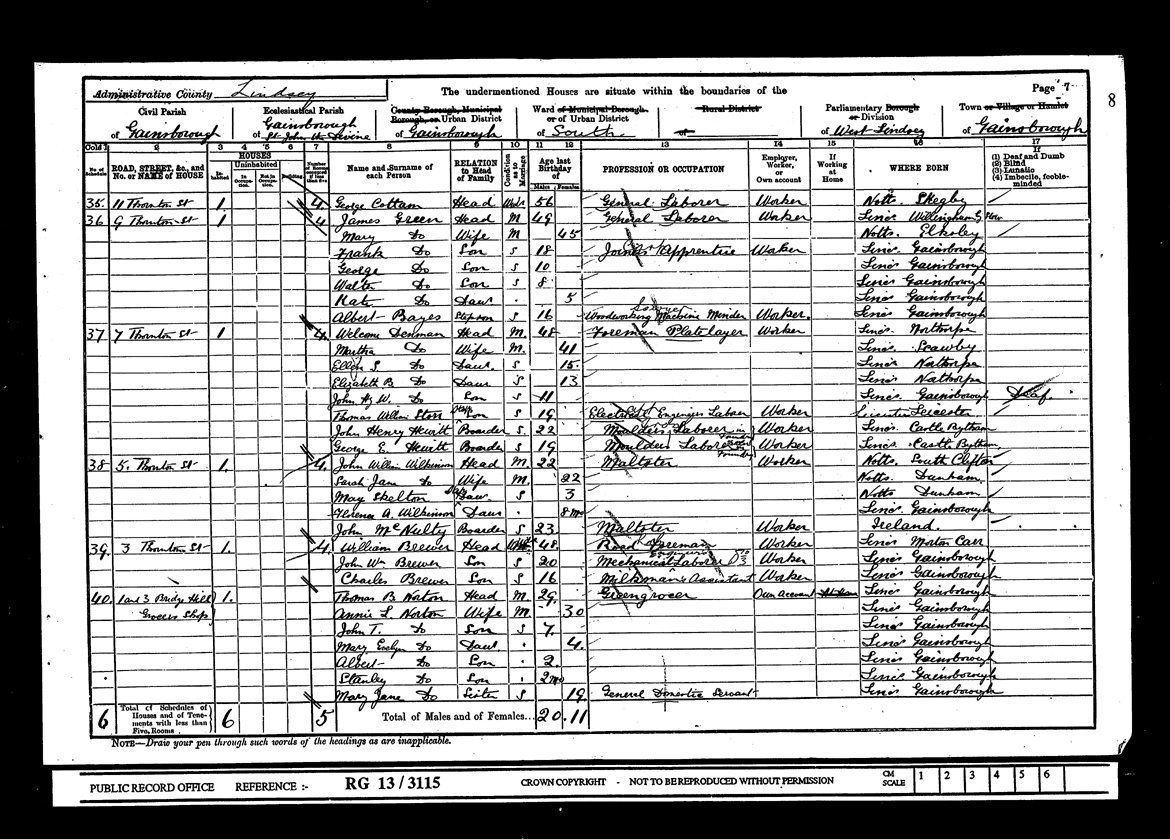 Administrative County Lindsey The undermentioned Houses are situate within the boundaries of the Page 7
8
Civil Parish Ecclesiastical Parish County Borough, Municipal Borough, or Urban District Ward of Municipal Borough or of Urban District Rural District Parliamentary Borough or Division Town or Village or Hamlet
of Gainsborough of Gainsborough St John the Devine of Gainsborough of South of of West Lindsey of Gainsborough
Cols. 1 2 3 4 5 6 7 8 9 10 11 12 13 14 15 16 17
No. of Schedule ROAD, STREET, &c., and No. or NAME of HOUSE HOUSES Inhabited Uninhabited In Occupation Not in Occupation Building Number of Rooms occupied if less than five Name and Surname of each Person RELATION to Head of Family Condition as to Marriage Age last Birthday of Males Females PROFESSION OR OCCUPATION Employer, Worker, or Own account If Working at Home WHERE BORN If (1) Deaf and Dumb (2) Blind (3) Lunatic (4) Imbecile, feeble-minded
35. 11 Thornton St 1 4 George Cottam Head Widr 56 General Laborer Worker Notts. Skegby
36 9 Thornton St 1 4 James Green Head M 49 General Laborer Worker Lincs. Willingham
Mary Do Wife M 45 Notts. Elksley
Frank Do Son S 18 Joiners Apprentice Worker Lincs. Gainsborough
George Do Son S 10 Lincs. Gainsborough
Walter Do Son S 8 Lincs. Gainsborough
Kate Do Daur . 5 Lincs. Gainsborough
Albert Bayes Stepson S 16 Woodworking Machine Minder Worker. Lincs. Gainsborough
37 7 Thornton St 1 4 Welcome Denman Head M. 48 Foreman Platelayer Worker Lincs. Northorpe
Martha Do Wife M. 41 Lincs. Scawby
Ellen S Do Daur. S 15. Lincs. Northorpe
Elizabeth B Do Daur S 13 Lincs. Northorpe
John Hy W. Do Son S 11 Lincs. Gainsborough Deaf.
Thomas Willm Storr Step Son S 19 Electrical Engineer Laborer Worker Leicester Leicester
John Henry Hewitt Boarder S 22 Moulders Laborer Worker Lincs. Castle Bytham
George E. Hewitt Boarder S 19 Moulders Laborer Worker Lincs. Castle Bytham
38 5. Thornton St 1. 4. John Willm Wilkinson Head M. 22 Maltster Worker Notts. South Clifton
Sarah Jane Do Wife M. 22 Notts. Dunham
May Skelton Step Daur. S 3 Notts Dunham
Florence A. Wilkinson Daur . 8 mo Lincs. Gainsborough
John McNulty Boarder S 23 Maltster Worker Ireland.
39. 3 Thornton St 1. 4. William Brewer Head 48. Road Foreman Worker Lincs Morton Carr
John Wm Brewer Son S 20 Mechanical Laborer Worker Lincs. Gainsborough
Charles Brewer Son S 16 Milkman's Assistant Worker Lincs. Gainsborough
40. 1 and 3 Bridge Hill 1. Thomas B Norton Head M 29. Greengrocer Own account At Home Lincs. Gainsborough
Grocers Shop Annie L. Norton Wife M. 30 Lincs. Gainsborough
John T. Do Son S 7. Lincs. Gainsborough
Mary Evelyn Do Daur . 4. Lincs. Gainsborough
Albert Do Son . 2. Lincs. Gainsborough
Stanley Do Son . 2 mo Lincs. Gainsborough
Mary Jane Do Sister S 19 General Domestic Servant Lincs. Gainsborough
6 Total of Schedules of Houses and of Tenements with less than Five Rooms 6 5 Total of Males and of Females... 20 11
NOTE—Draw your pen through such words of the headings as are inapplicable.
PUBLIC RECORD OFFICE REFERENCE :- RG 13 / 3115 CROWN COPYRIGHT - NOT TO BE REPRODUCED WITHOUT PERMISSION CM SCALE 1 2 3 4 5 6